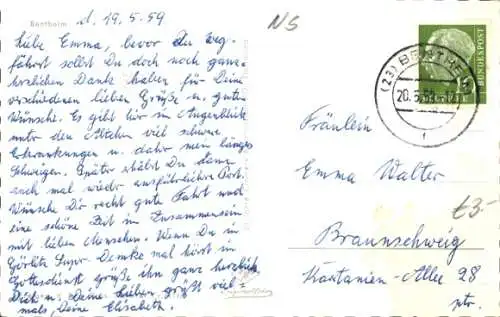 Bentheim d. 19.5.59
Liebe Emma, bevor Du weg-
fährst sollst Du doch noch ganz
herzlichen Dank haben für Deine
verschiedenen lieben Grüße u. guten
Wünsche. Es gibt hier im Augenblick
unter den Alten viel schwere
Erkrankungen u. daher mein langes
Schweigen. Später erhältst Du dann
auch mal wieder ausführlichere Post.
Wünsche Dir recht gute Fahrt und
eine schöne Zeit im Zusammensein
mit lieben Menschen. Wenn Du in
Görlitz Supr. Demke mal hörst im
Gottesdienst grüße ihn ganz herzlich.
Dich u. Deine Lieben grüßt viel-
mals, Deine Elisabeth.
NS
DEUTSCHE BUNDESPOST
(23) BENTHEIM
20.5.59
Fräulein
Emma Walter
£3-
Braunschweig
Kastanien-Allee 28
ptr.